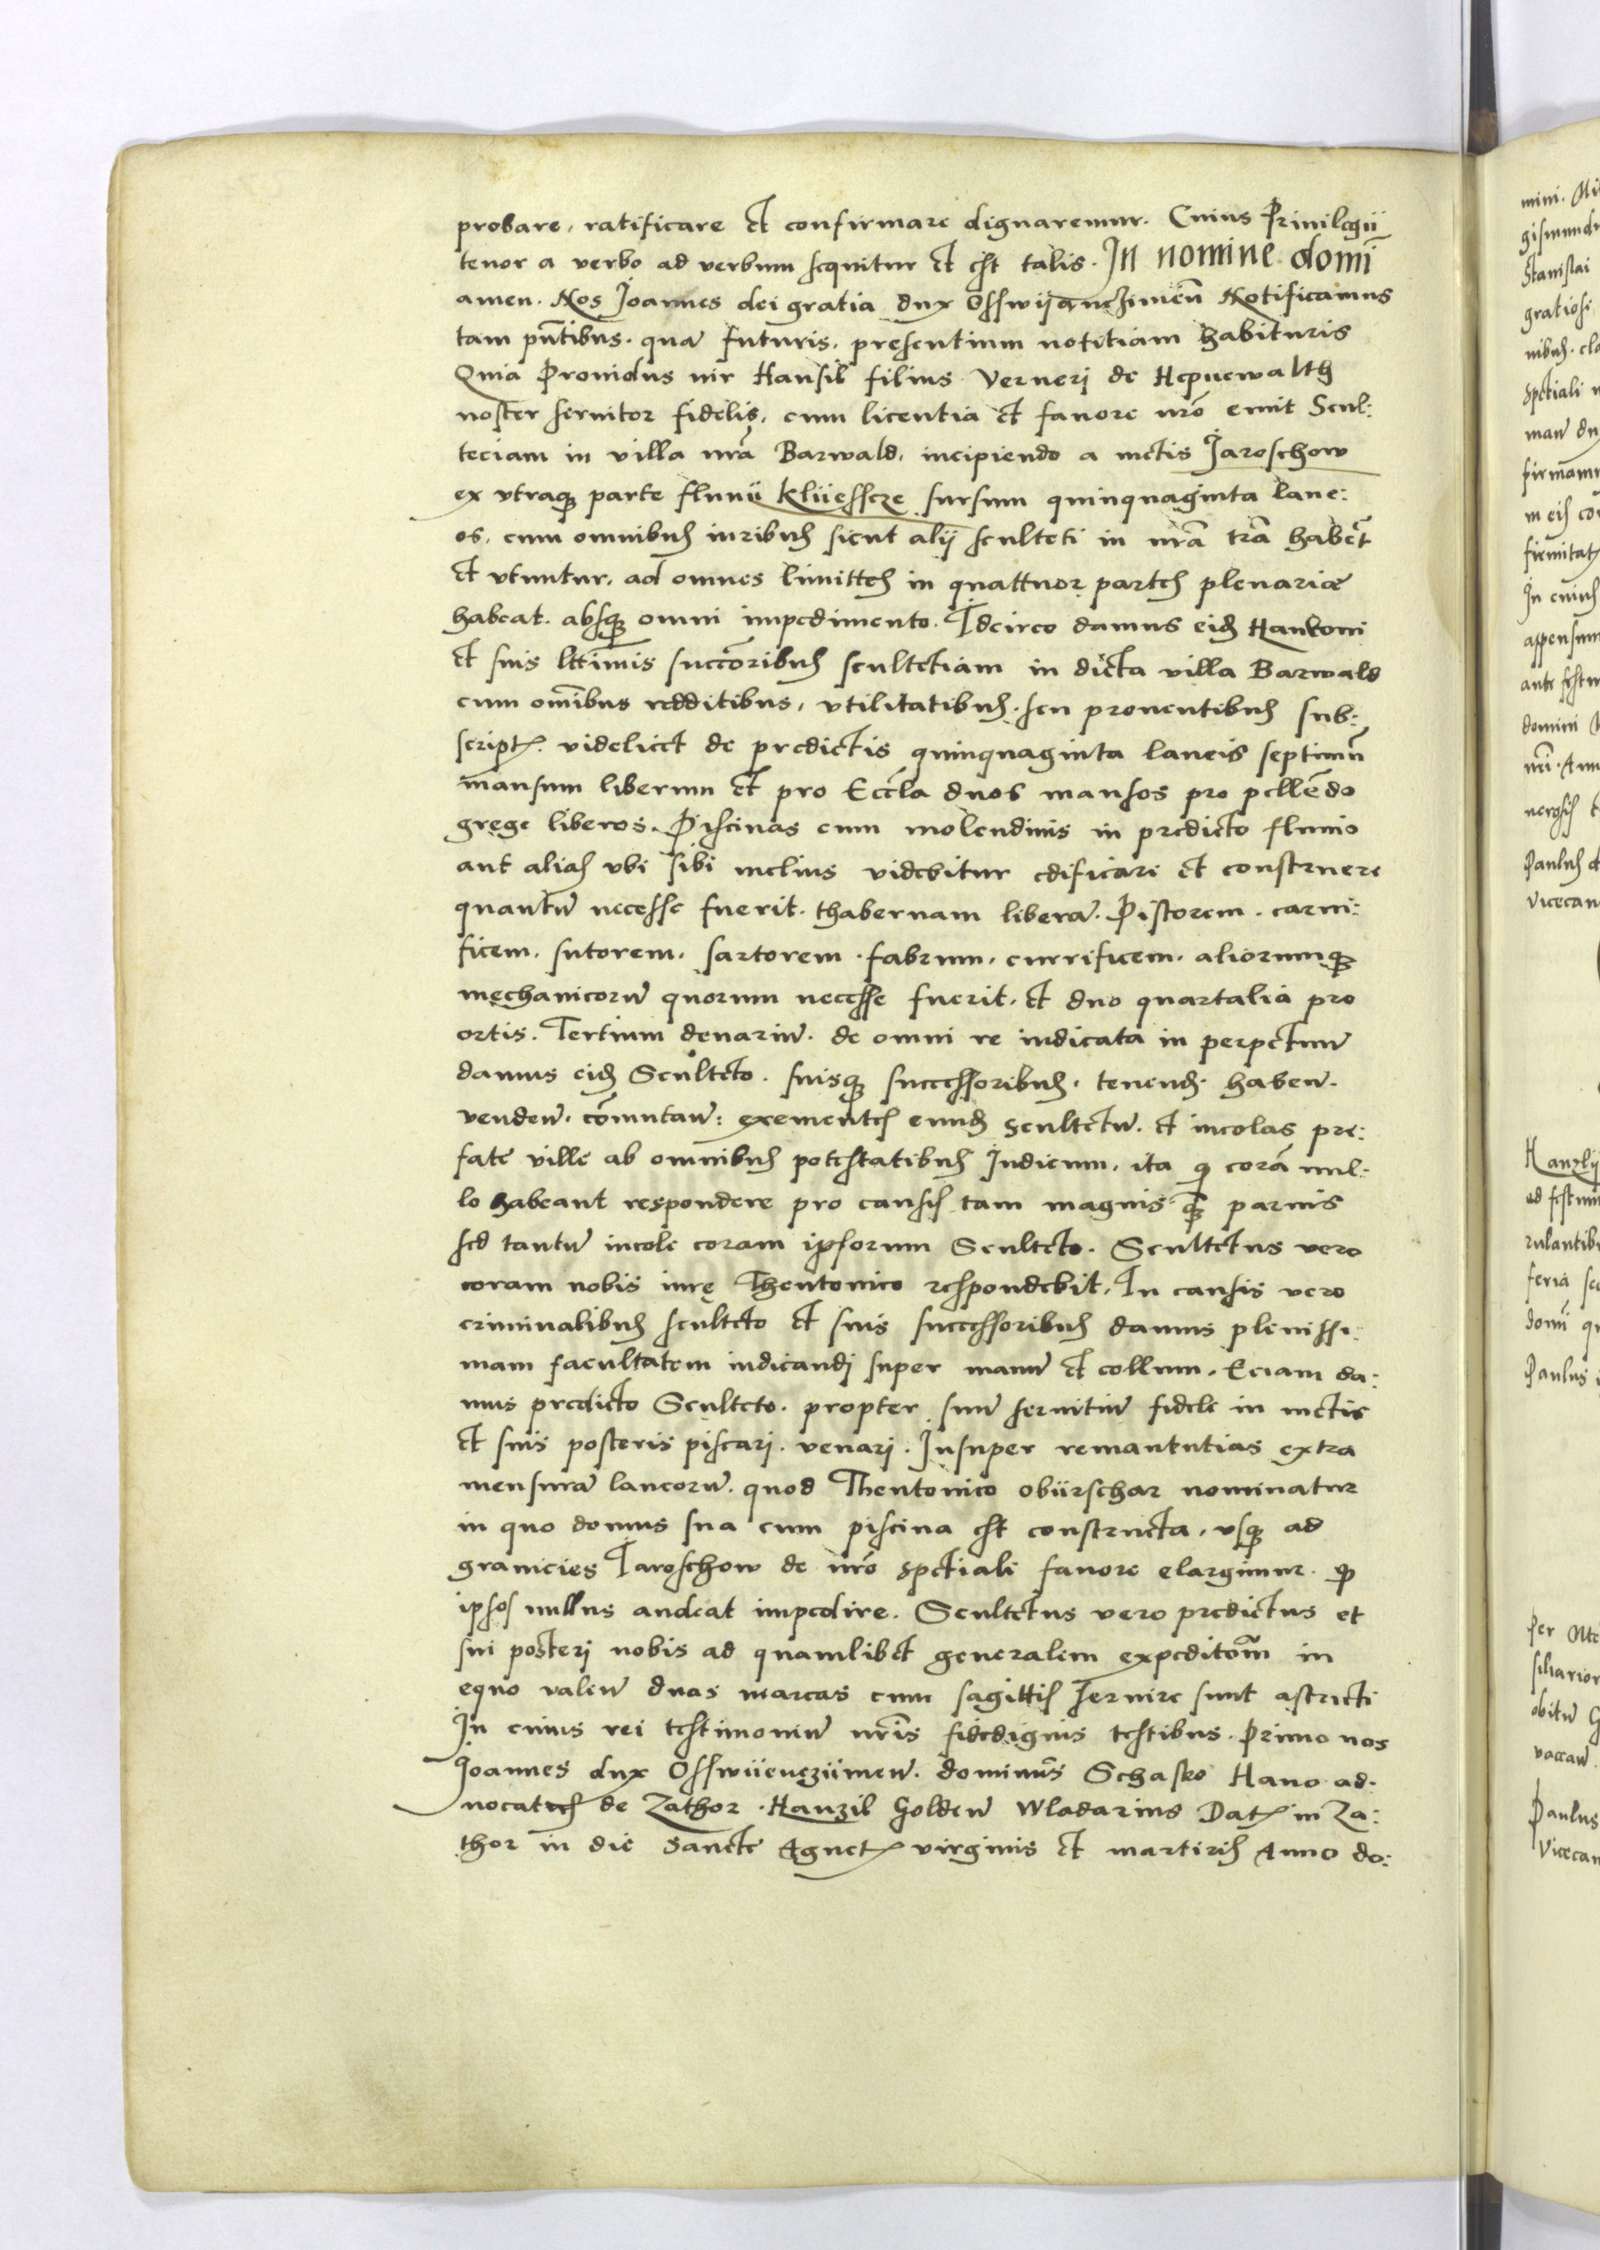 probare, ratificare et confirmare dignaremur. Cuius Privilegii
tenor a verbo ad verbum sequitur et est talis. In nomine domī
amen. Nos Joannes dei gratia dux Osswijanczimeñ Notificamus
tam pñtibus. quā futuris, presentium notitiam habituris
Quia Providus vir Hansil filius Verneri de Hepnewalth
noster servitor fidelis, cum licentia et favore nrō emit Scul:
teciam in villa nrā Barwald, incipiendo a metis Jaroschow
ex utraq; parte fluvii klüesscze sursum quinquaginta lane:
os, cum omnibus iuribus sicut alij sculteti in nrā trā habēt
et utuntur, ad omnes limittes in quattuor partes plenariæ
habeat. absq; omni impedimento. Idcirco damus eid Hankoni
et suis lttimis succōribus scultetiam in dicta villa Barwald
cum omībus redditibus, utilitatibus. seu proventibus sub:
script. videlicet de predictis quinquaginta laneis septimū
mansum liberum et pro Eccla duos mansos pro pellēdo
grege liberos. Piscinas cum molendinis in predicto fluvio
aut alias ubi sibi melius videbitur edificari et construere
quantū necesse fuerit. thabernam liberā. Pistorem. carni:
ficem, sutorem, sartorem. fabrum, currificem, aliorumq;
mechanicorū quorum necesse fuerit, et duo quartalia pro
ortis. Tertium denariū. de omni re iudicata in perpetuū
damus eid Sculteto. suisq; successoribus, tenend. habeñ.
vendeñ. cōmutañ: exementes eund scultetū. et incolas pre:
fate ville ab omnibus potestatibus Judicum, ita q corā nul:
lo habeant respondere pro causis tam magnis. q parvis
sed tantū incole coram ipsorum Sculteto. Scultetus vero
coram nobis iure Theutonico respondebit, In causis vero
criminalibus sculteto et suis successoribus damus plenissi:
mam facultatem iudicandi super manū et collum. Eciam da:
mus predicto Sculteto. propter suū servitiū fidele in metis
et suis posteris piscari. venari. Insuper remanentias extra
mensurā laneorū. quod Theutonico obürschar nominatur
in quo domus sua cum piscina est constructa, usq; ad
granicies Jaroschow de nrō spetiali favore elargimur. q
ipsos nullus audeat impedire. Scultetus vero predictus et
sui posteri nobis ad quamlibet generalem expeditōm in
equo valeñ duas marcas cum sagittis servire sunt astricti
In cuius rei testimoniū nrīs fidedignis testibus. Primo nos
Joannes dux Osswüenczümeñ. dominus Schasko Hano ad:
vocatus de Zathor. Hanzil Goldeñ Wladarius Dat in Za:
thor in die Sancte Agnet virginis et martiris Anno do: